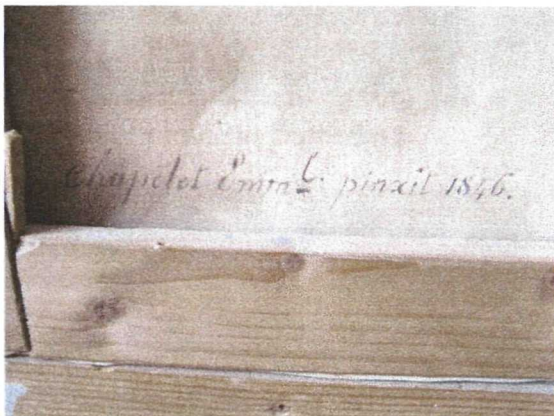 Chapelet Emm.l pinxit 1846.